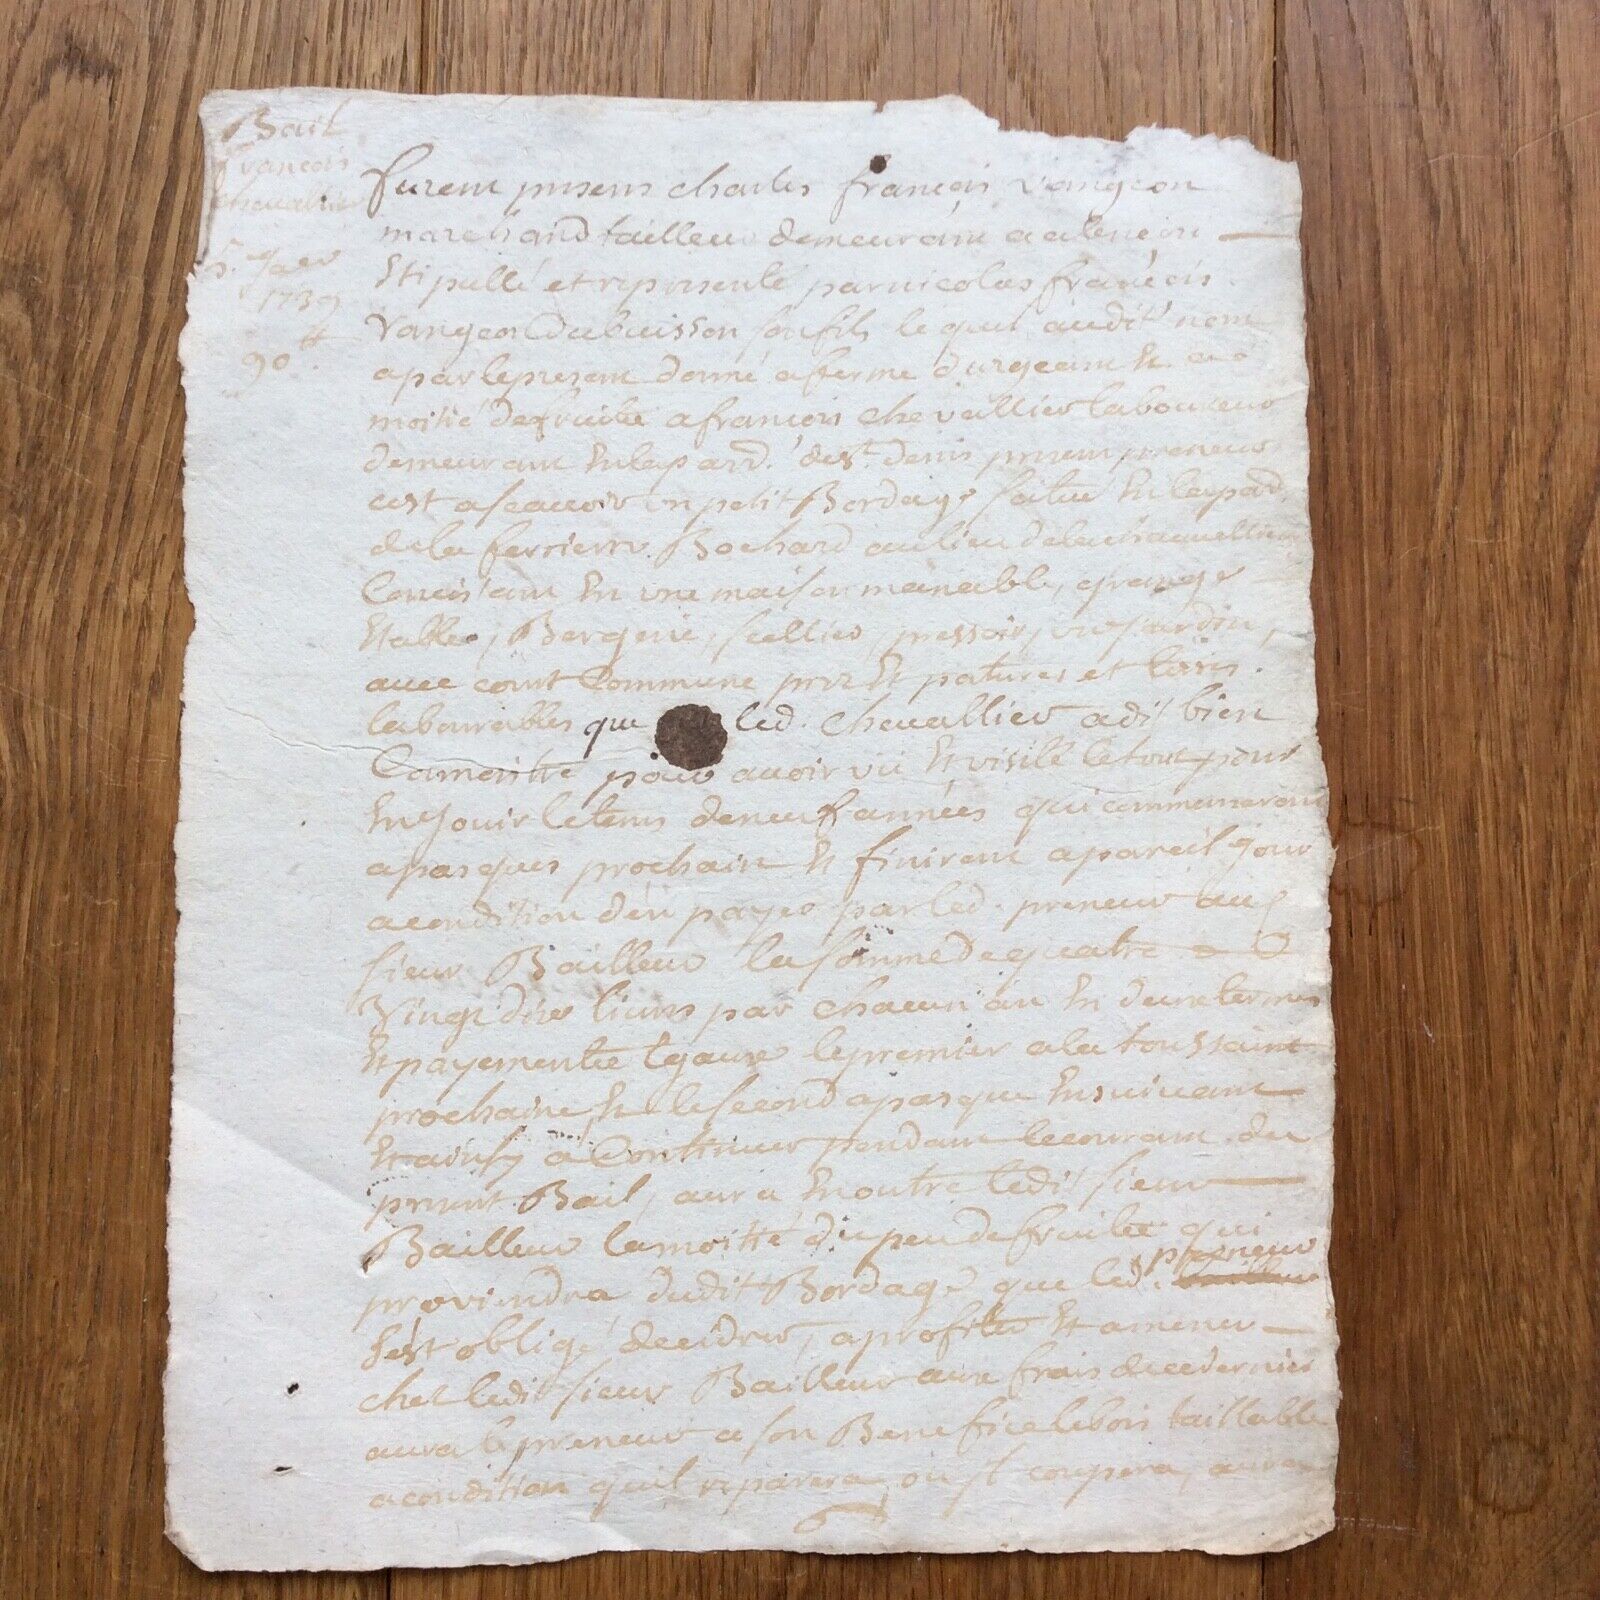 Bail
françois
chevallier
5. Janv
1739
90 tt
furent presens charles françois vangeon
marchand tailleur demeurant a alençon
Stipullé et represente par nicolas françois
Vangeon dubuisson son fils le quel audit nom
a par le present donné a ferme d'argeant Et a
moitié de fruits a françois chevallier laboureur
demeurant En la parr. de st. denis present preneur
cest a scauoir un petit Bordage scitué En la parr.
de la ferriere Bochard au lieu de la chauvelliere
Concistant En une maison manable, grange
Etable, Bergerie, scellier, pressoir, un jardin,
avec court Commune prez Et patures et terres
labourables que led. chevallier a dit bien
Connoitre pour avoir vu Et visitté le tout pour
En Jouir le tems de neuf années qui commenceront
a pasques prochain Et finiront a pareil jour
a condition d'en payer par led. preneur aud
sieur Bailleur la somme de quatre
Vingt dix liures par chacun an En deux termes
Et payements Egaux le premier a la toussaint
prochaine Et le second a pasque Ensuivant
Et ainsy a Continuer pendant le courant du
present Bail, aura En outre ledit sieur
Bailleur la moitié du peu de fruits qui
proviendra dudit Bordage que led. preneur
s'est obligé de cidrer, a profiter Et amener
chez ledit sieur Bailleur aux frais de ce dernier
aura le preneur a son Benefice le bois taillable
a condition qu'il reparera ou Il coupera, aura